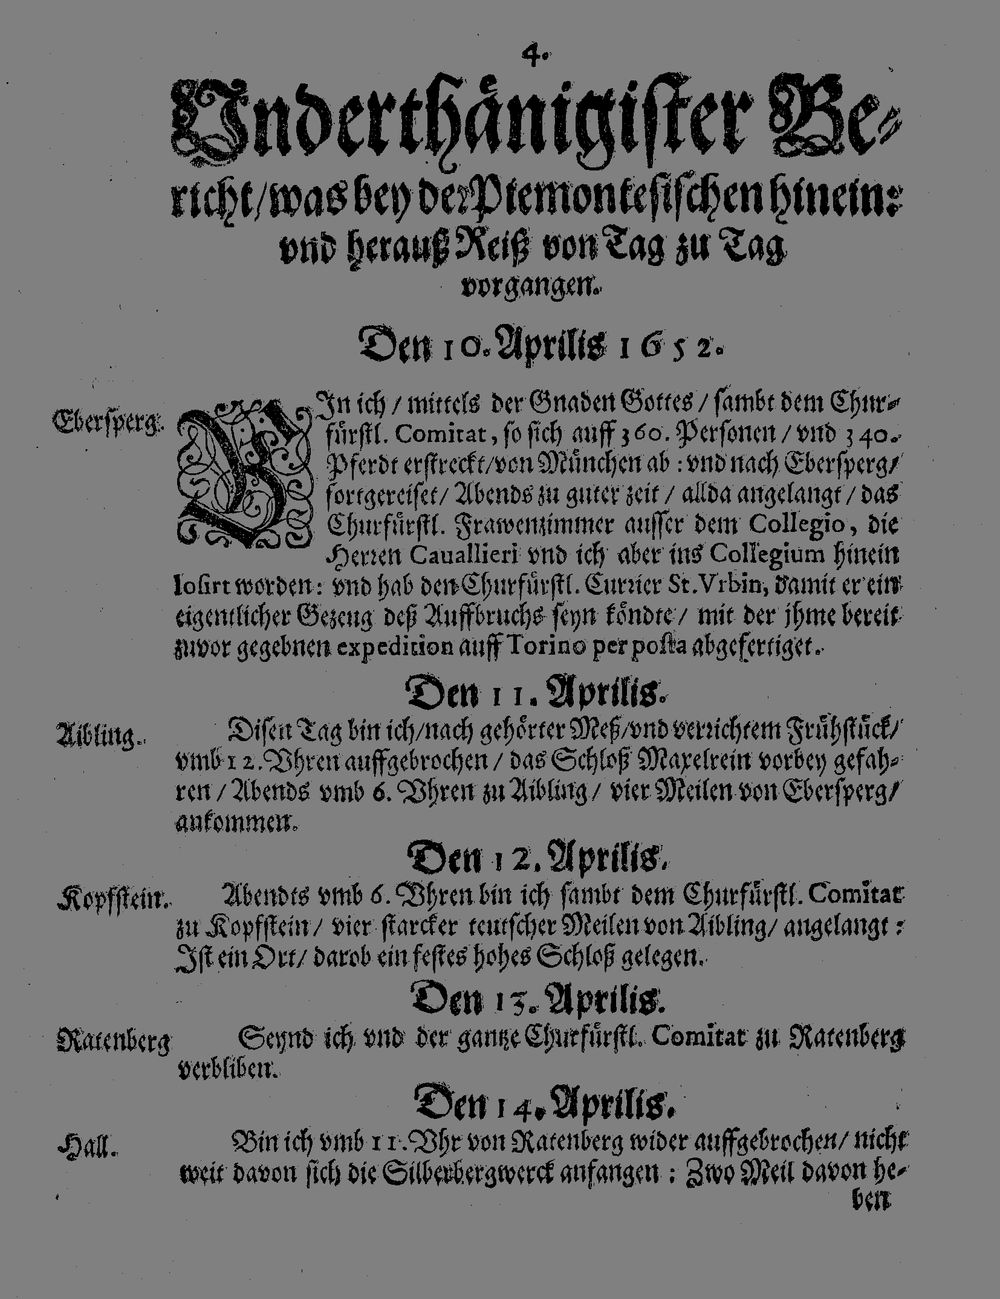 4.
Vnderthänigister Be-
richt/was bey der Piemontesischen hinein:
vnd herauß Reiß von Tag zu Tag
vorgangen.
Den 10. Aprilis 1652.
Ebersperg.
BIn ich / mittels der Gnaden Gottes / sambt dem Chur-
fürstl. Comitat, so sich auff 360. Personen / vnd 340.
Pferdt erstreckt/von München ab : vnd nach Ebersperg/
fortgereiset/ Abends zu guter zeit / allda angelangt / das
Churfürstl. Frawenzimmer ausser dem Collegio, die
Herren Cauallieri vnd ich aber ins Collegium hinein
losirt worden : vnd hab den Churfürstl. Currier St. Vrbin, damit er ein
eigentlicher Gezeug deß Auffbruchs seyn köndte/ mit der jhme bereit
zuvor gegebnen expedition auff Torino per posta abgefertiget.
Den 11. Aprilis.
Aibling.
Disen Tag bin ich/nach gehörter Meß/vnd verrichtem Frühstück/
vmb 12. Vhren auffgebrochen / das Schloß Maxelrein vorbey gefah-
ren / Abends vmb 6. Vhren zu Aibling/ vier Meilen von Ebersperg/
ankommen.
Den 12. Aprilis.
Kopfstein.
Abendts vmb 6. Vhren bin ich sambt dem Churfürstl. Comitat
zu Kopfstein / vier starcker teutscher Meilen von Aibling/ angelangt :
Ist ein Ort/ darob ein festes hohes Schloß gelegen.
Den 13. Aprilis.
Ratenberg
Seynd ich vnd der gantze Churfürstl. Comitat zu Ratenberg
verbliben.
Den 14. Aprilis.
Hall.
Bin ich vmb 11. Vhr von Ratenberg wider auffgebrochen/ nicht
weit davon sich die Silberbergwerck anfangen : Zwo Meil davon he-
ben